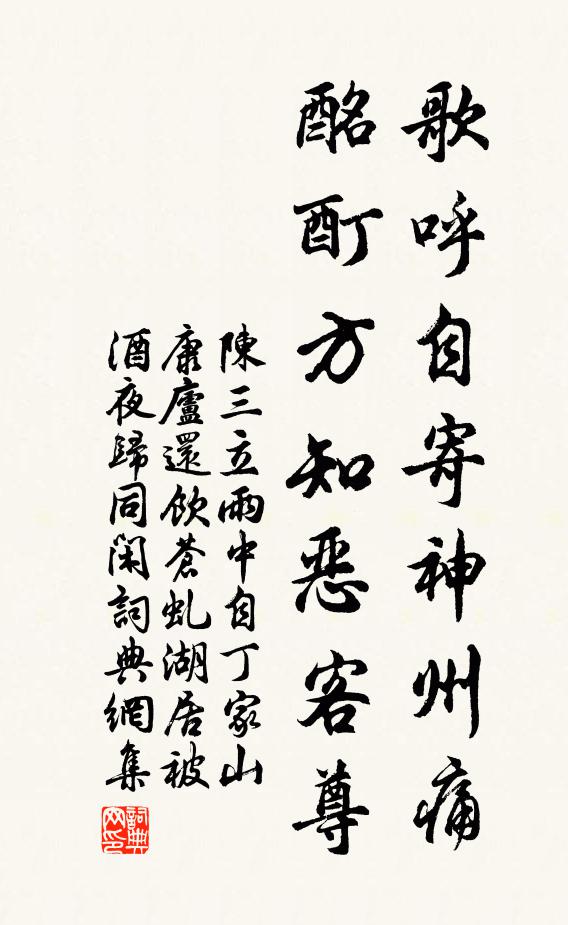 歌呼自寄神州痛
酩酊方知惡客尊
陳三立雨中自丁家山
康廬還飲蒼虬湖居被
酒夜歸同閑詞典網集
詞典
网印